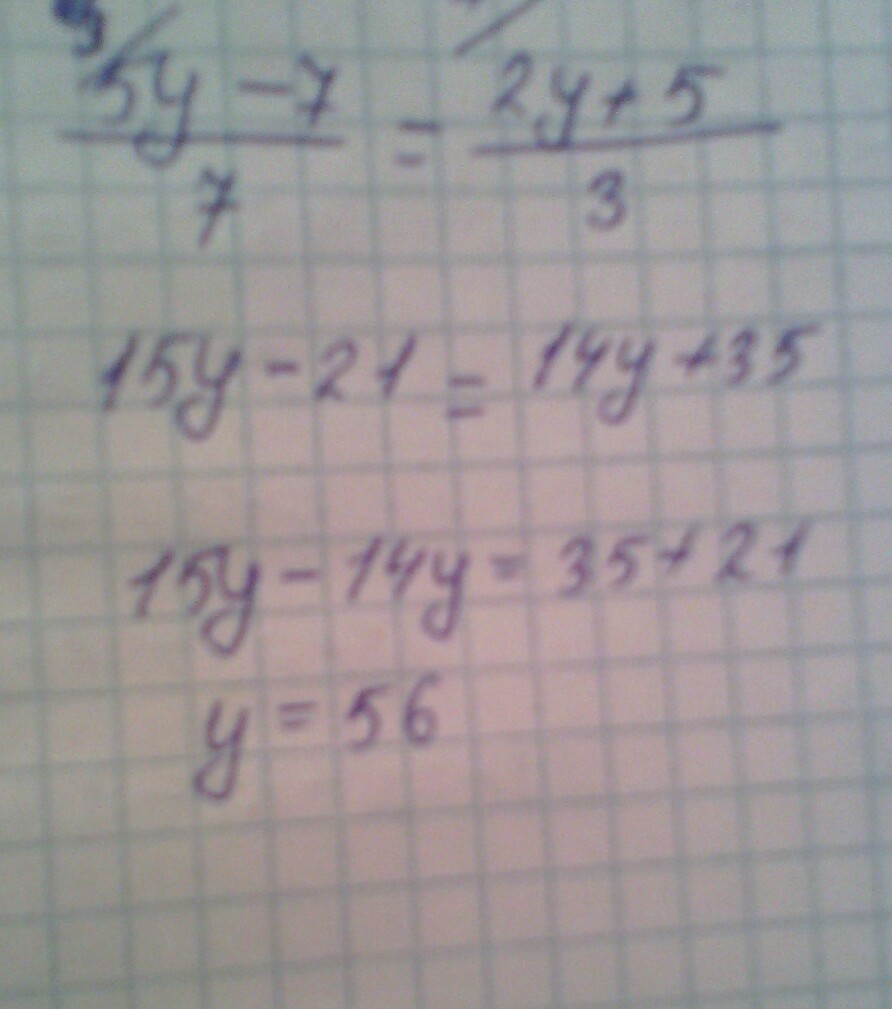 3/ 5y - 7 / 7 = 2y + 5 / 3
15y - 21 = 14y + 35
15y - 14y = 35 + 21
y = 56